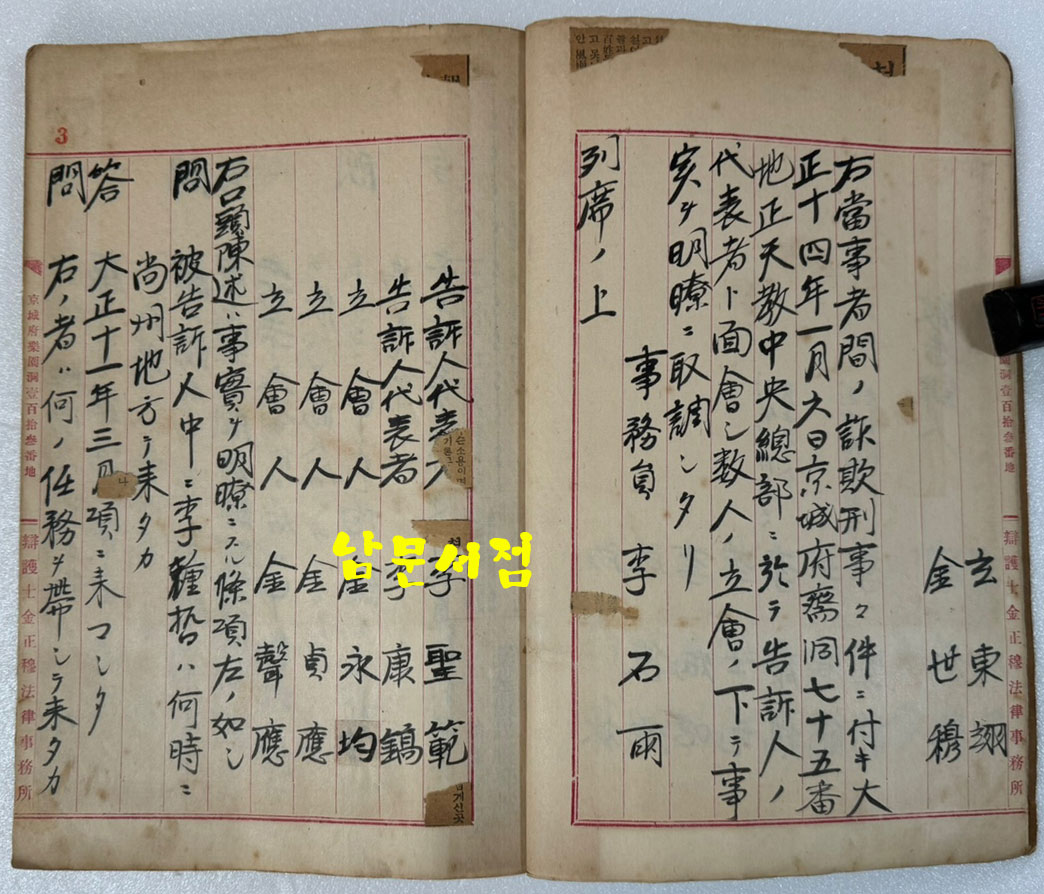 玄東翊
金世穆
右當事者間ノ詐欺刑事々件ニ付キ大
正十四年一月六日京城府齋洞七十五番
地正天教中央總部ニ於テ告訴人ノ
代表者ト面會シ数人ノ立會ノ下テ事
実ヲ明瞭ニ取調シタリ
列席ノ上
事務員 李石雨
洞壹百拾参番地
辯護士金正穆法律事務所
告訴人代表 李聖範
告訴人代表者 李康鎬
立會人 金永均
立會人 金貞應
立會人 金聲應
右口頭陳述ハ事實ヲ明瞭ニスル條項左ノ如シ
問 被告訴人中ニ李鍾哲ハ何時ニ
尚州地方テ来タカ
答 大正十一年三月項ニ来マシタ
問 右ノ者ハ何ノ任務ヲ帶シテ来タカ
京城府樂園洞壹百拾参番地
辯護士金正穆法律事務所
3
납문서점